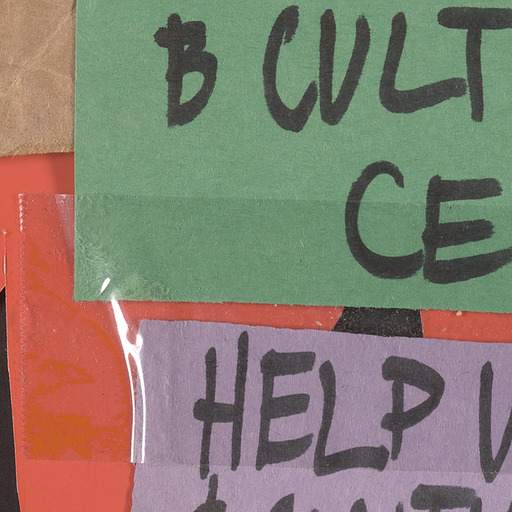 B CULT
CE
HELP